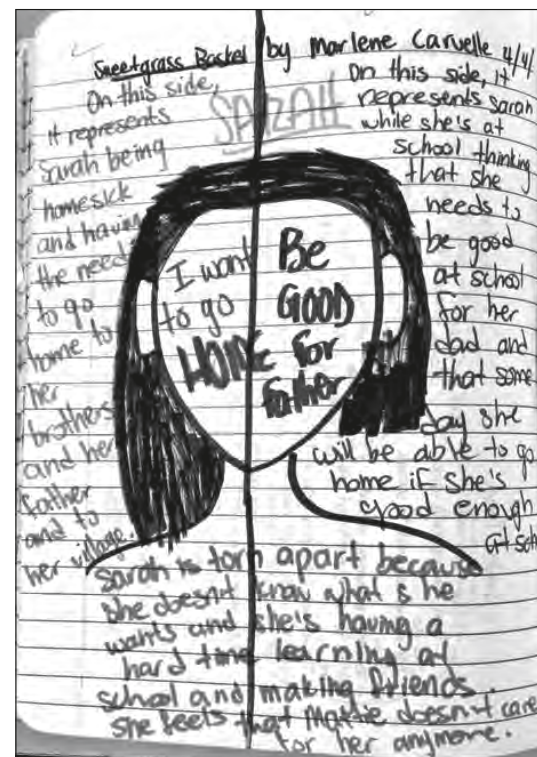 Sweetgrass Basket by Marlene Carvelle 4/4/
SARAH
On this side,
it represents
Sarah being
homesick
and having
the need
to go
home to
her
brothers
and her
father
and to
her village.
I want
to go
HOME
Be
GOOD
for
father
On this side, it
represents sarah
while she's at
school thinking
that she
needs to
be good
at school
for her
dad and
that some
day she
will be able to go
home if she's
good enough
at sch
Sarah is torn apart because
she doesn't know what she
wants and she's having a
hard time learning at
school and making friends.
She feels that Mattie doesn't care
for her anymore.